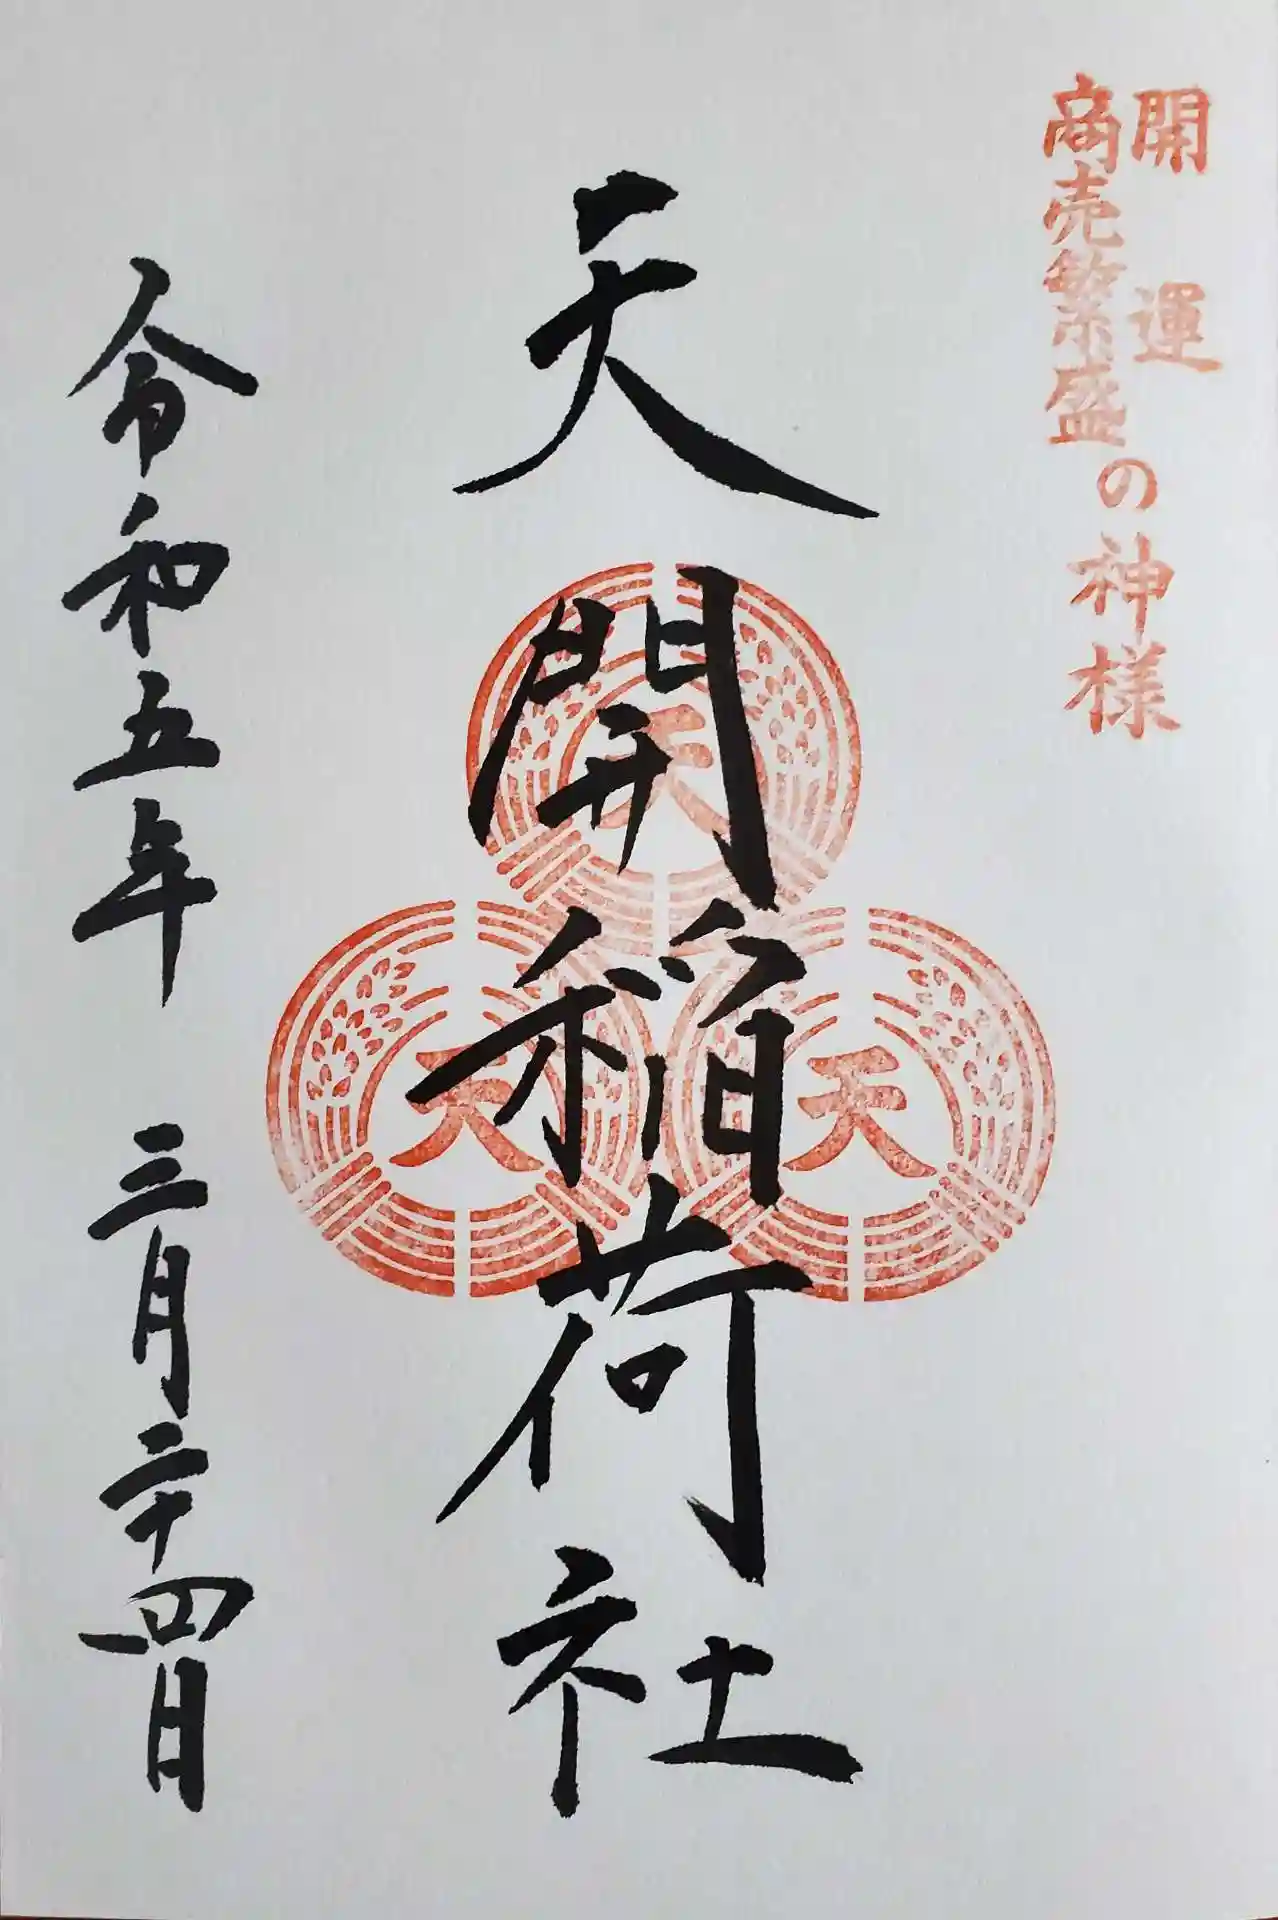 開運
商売繁盛
の神様
天開稲荷社
天
天
天
令和五年 三月二十四日